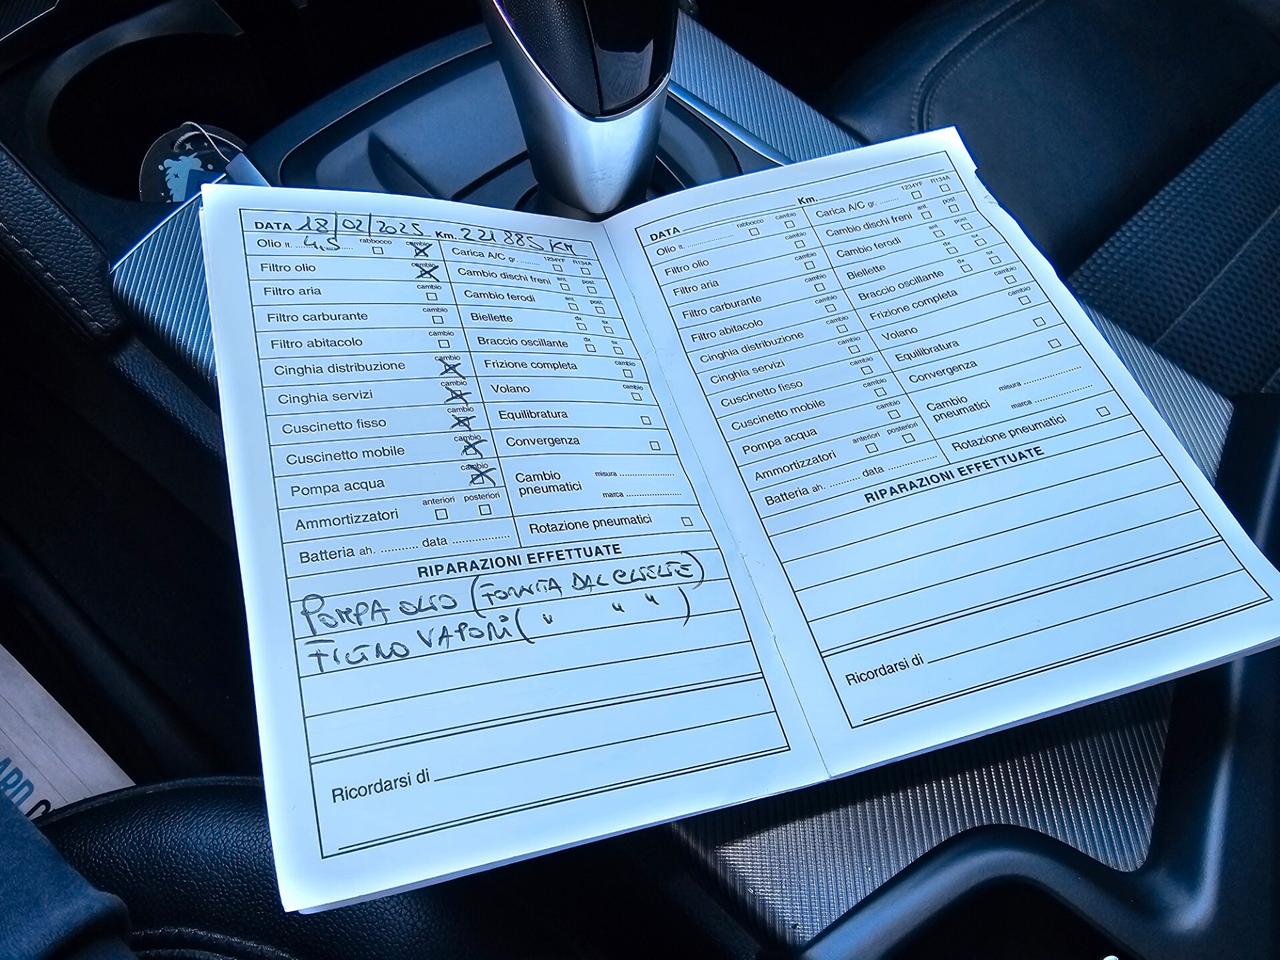 DATA 18/02/2025 Km. 221885 KM
Olio lt. 4,5 rabbocco cambio
Filtro olio cambio
Filtro aria cambio
Filtro carburante cambio
Filtro abitacolo cambio
Cinghia distribuzione cambio
Cinghia servizi cambio
Cuscinetto fisso cambio
Cuscinetto mobile cambio
Pompa acqua cambio
Ammortizzatori anteriori posteriori
Batteria ah. .......... data ................
Carica A/C gr. ........ 1234YF R134A
Cambio dischi freni ant. post.
Cambio ferodi ant. post.
Biellette dx sx
Braccio oscillante dx sx
Frizione completa cambio
Volano cambio
Equilibratura
Convergenza
Cambio pneumatici misura ................
marca ................
Rotazione pneumatici
RIPARAZIONI EFFETTUATE
POMPA OLIO (FORNITA DAL CLIENTE)
FILTRO VAPORI ( " " " )
Ricordarsi di
DATA Km.
Olio lt. rabbocco cambio
Filtro olio cambio
Filtro aria cambio
Filtro carburante cambio
Filtro abitacolo cambio
Cinghia distribuzione cambio
Cinghia servizi cambio
Cuscinetto fisso cambio
Cuscinetto mobile cambio
Pompa acqua cambio
Ammortizzatori anteriori posteriori
Batteria ah. .......... data ................
Carica A/C gr. ........ 1234YF R134A
Cambio dischi freni ant. post.
Cambio ferodi ant. post.
Biellette dx sx
Braccio oscillante dx sx
Frizione completa cambio
Volano cambio
Equilibratura
Convergenza
Cambio pneumatici misura ................
marca ................
Rotazione pneumatici
RIPARAZIONI EFFETTUATE
Ricordarsi di